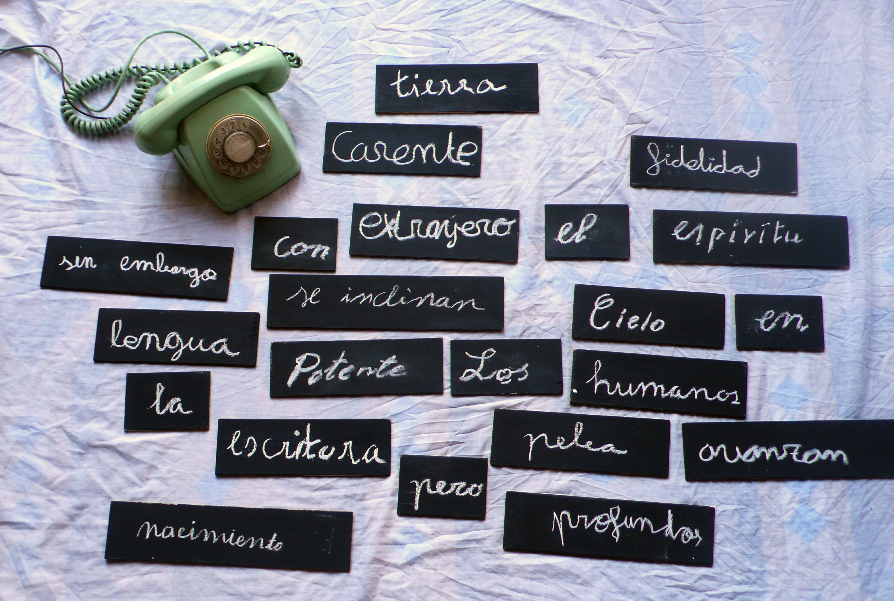 tierra
Carente
fidelidad
sin embargo con extranjero el espiritu
se inclinan
lengua Cielo en
Potente Los
la .humanos
escritura pelea avanzan
pero
nacimiento profundos